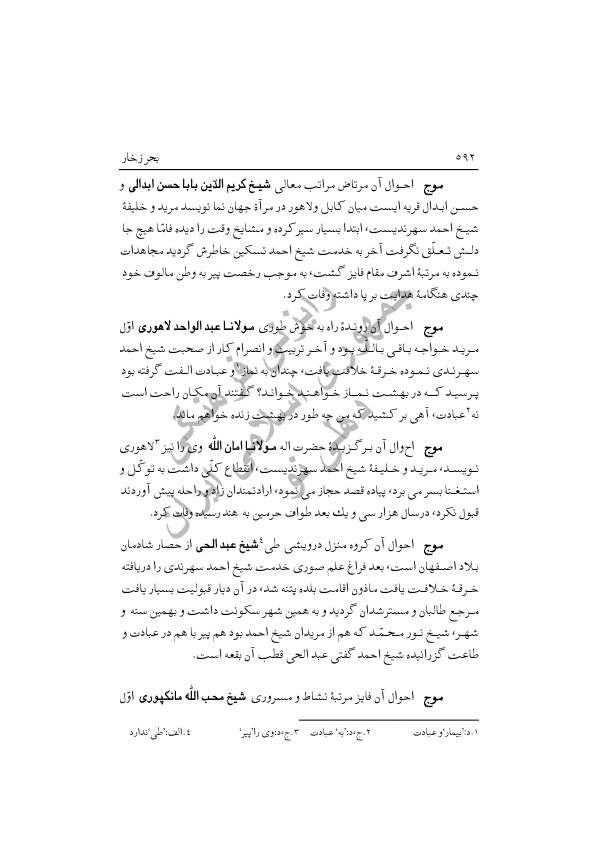 ۵۹۲ بحر زخار
موج احوال آن مرتاض مراتب معالی شیخ کریم الدّین بابا حسن ابدالی و
حسن ابدال قریه ایست میان کابل ولاهور در مرآة جهان نما نویسد مرید و خلیفهٔ
شیخ احمد سهرندیست، ابتدا بسیار سیر کرده و مشایخ وقت را دیده فامّا هیچ جا
دلش تعلّق نگرفت آخر به خدمت شیخ احمد تسکین خاطرش گردید مجاهدات
نموده به مرتبهٔ اشرف مقام فایز گشت، به موجب رخصت پیر به وطن مالوف خود
چندی هنگامهٔ هدایت بر پا داشته وفات کرد.
موج احوال آن روندهٔ راه به خوش طوری مولانا عبد الواحد لاهوری اوّل
مرید خواجه باقی باللّه بود و آخر تربیت و انصرام کار از صحبت شیخ احمد
سهرندی نموده خرقهٔ خلافت یافت، چندان به نماز۱ و عبادت الفت گرفته بود
پرسید که در بهشت نماز خواهند خواند؟ گفتند آن مکان راحت است
نه۲ عبادت، آهی بر کشید که من چه طور در بهشت زنده خواهم ماند.
موج احوال آن برگزیدهٔ حضرت اله مولانا امان الله وی را نیز۳ لاهوری
نویسد، مرید و خلیفهٔ شیخ احمد سهرندیست، انقطاع کلّی داشت به توکّل و
استغنا بسر می برد، پیاده قصد حجاز می نمود، ارادتمندان زاد و راحله پیش آوردند
قبول نکرد، درسال هزار سی و یك بعد طواف حرمین به هند رسیده وفات کرد.
موج احوال آن گروه منزل درویشی طی۴ شیخ عبد الحی از حصار شادمان
بلاد اصفهان است، بعد فراغ علم صوری خدمت شیخ احمد سهرندی را دریافته
خرقهٔ خلافت یافت ماذون اقامت بلده پتنه شد، در آن دیار قبولیت بسیار یافت
مرجع طالبان و مسترشدان گردید و به همین شهر سکونت داشت و بهمین سنه و
شهر، شیخ نور محمّد که هم از مریدان شیخ احمد بود هم پیر با هم در عبادت و
طاعت گزرانیده شیخ احمد گفتی عبد الحی قطب آن بقعه است.
موج احوال آن فایز مرتبهٔ نشاط و مسروری شیخ محب الله مانکپوری اوّل
۱.د:'بیمار'و عبادت ۲.ج،د:'به' عبادت ۳.ج،د:وی را'پیر' ۴.الف:'طی'ندارد
رایزنی فرهنگی
جمهوری اسلامی ایران
دهلی نو